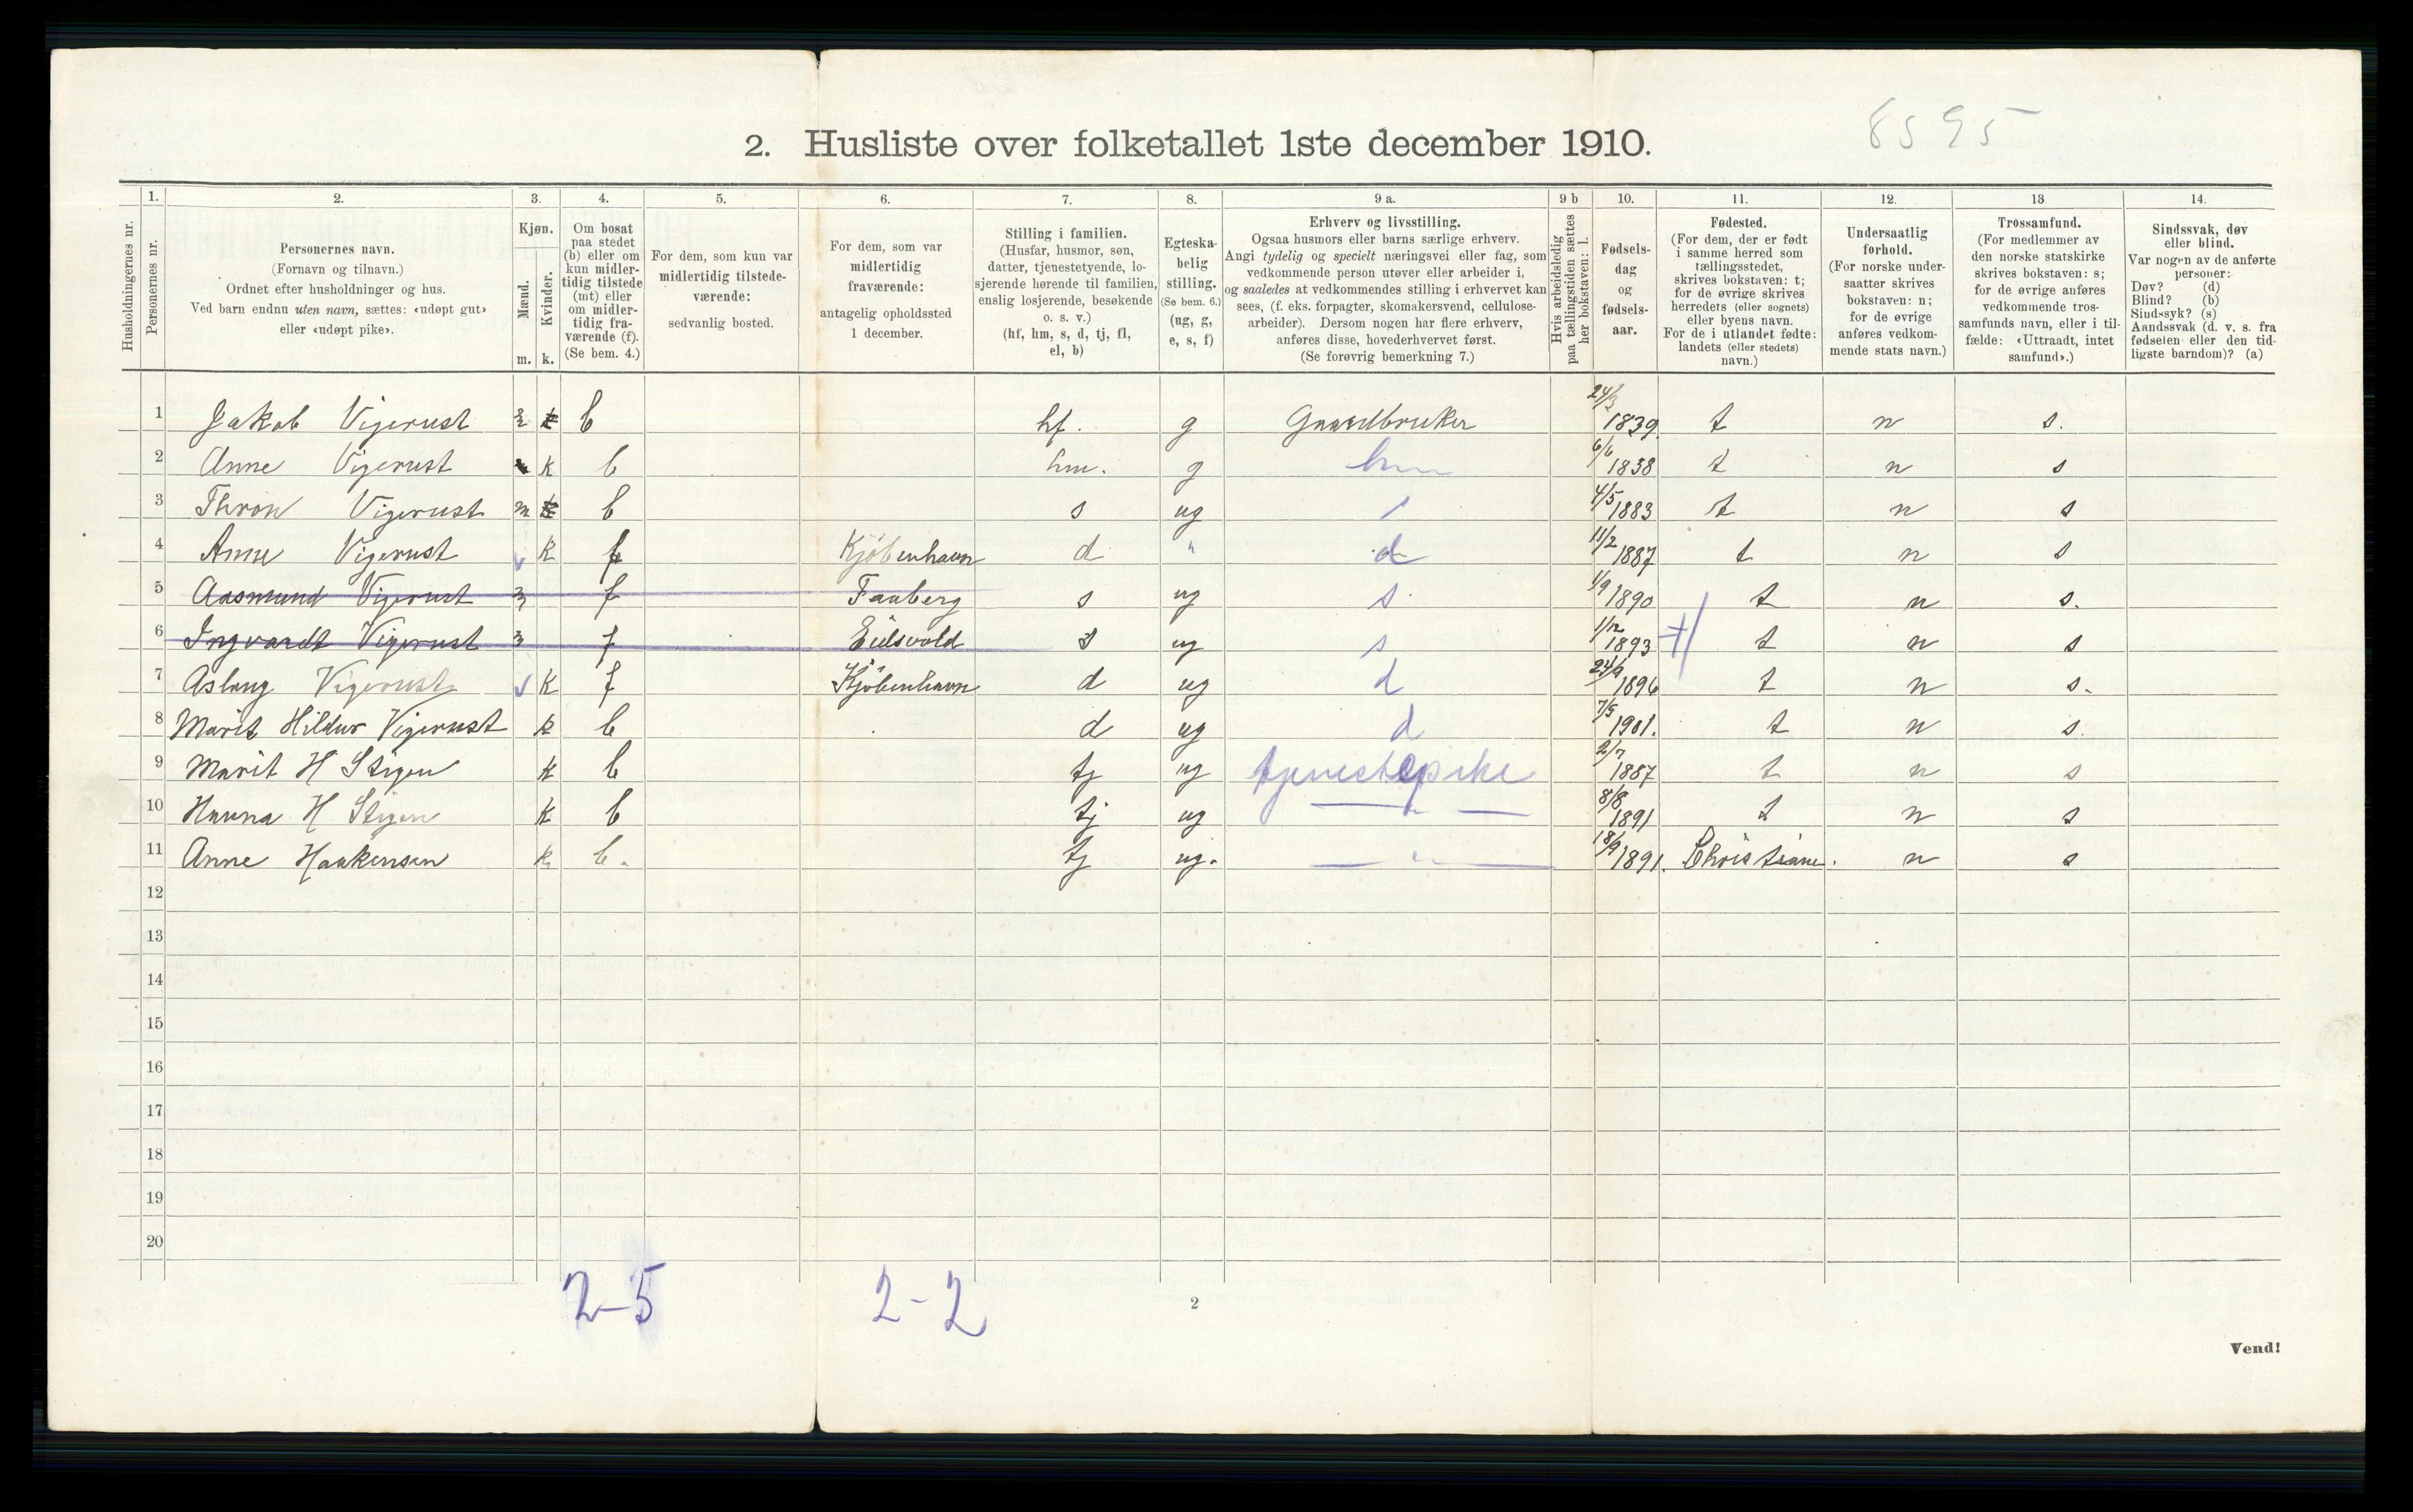 8595
2. Husliste over folketallet 1ste december 1910.
Husholdningernes nr.
1. Personernes nr.
2. Personernes navn. (Fornavn og tilnavn.) Ordnet efter husholdninger og hus. Ved barn endnu uten navn, sættes: «udøpt gut» eller «udøpt pike».
3. Kjøn. Mænd. m. Kvinder. k.
4. Om bosat paa stedet (b) eller om kun midler-tidig tilstede (mt) eller om midler-tidig fra-værende (f). (Se bem. 4.)
5. For dem, som kun var midlertidig tilstede-værende: sedvanlig bosted.
6. For dem, som var midlertidig fraværende: antagelig opholdssted 1 december.
7. Stilling i familien. (Husfar, husmor, søn, datter, tjenestetyende, lo-sjerende hørende til familien, enslig losjerende, besøkende o. s. v.) (hf, hm, s, d, tj, fl, el, b)
8. Egteska-belig stilling. (Se bem. 6.) (ug, g, e, s, f)
9 a. Erhverv og livsstilling. Ogsaa husmors eller barns særlige erhverv. Angi tydelig og specielt næringsvei eller fag, som vedkommende person utøver eller arbeider i, og saaledes at vedkommendes stilling i erhvervet kan sees, (f. eks. forpagter, skomakersvend, cellulose-arbeider). Dersom nogen har flere erhverv, anføres disse, hovederhvervet først. (Se forøvrig bemerkning 7.)
9 b Hvis arbeidsledig paa tællingstiden sættes her bokstaven: l.
10. Fødsels-dag og fødsels-aar.
11. Fødested. (For dem, der er født i samme herred som tællingsstedet, skrives bokstaven: t; for de øvrige skrives herredets (eller sognets) eller byens navn. For de i utlandet fødte: landets (eller stedets) navn.)
12. Undersaatlig forhold. (For norske under-saatter skrives bokstaven: n; for de øvrige anføres vedkom-mende stats navn.)
13 Trossamfund. (For medlemmer av den norske statskirke skrives bokstaven: s; for de øvrige anføres vedkommende tros-samfunds navn, eller i til-fælde: «Uttraadt, intet samfund».)
14. Sindssvak, døv eller blind. Var nogen av de anførte personer: Døv? (d) Blind? (b) Sindssyk? (s) Aandssvak (d. v. s. fra fødselen eller den tid-ligste barndom)? (a)
1 Jakob Vigerust m k b hf. g Gaardbruker 24/3 1839. t n s.
2 Anne Vigerust k b hm. g hm 6/6 1838 t n s
3 Thron Vigerust m k b s ug s 4/5 1883 t n s
4 Anne Vigerust k f Kjöbenhavn d " d 11/2 1887 t n s
5 Aasmund Vigerust m f Faaberg s ug s 1/9 1890 t n s.
6 Ingvardt Vigerust m f Eidsvold s ug s 1/12 1893 t n s
7 Aslaug Vigerust k f Kjöbenhavn d ug d 24/9 1896 t n s.
8 Marit Hildur Vigerust k b d ug d 7/5 1901. t n s.
9 Marit H Stigen k b tj ug tjenestepike 2/7 1887 t n s
10 Hanna H Stigen k b tj ug — " — 8/8 1891 t n s
11 Anne Haakensen k b. tj ug. — " — 18/9 1891. Christiane. n s
12
13
14
15
16
17
18
19
20
2-5 2-2
2
Vend!